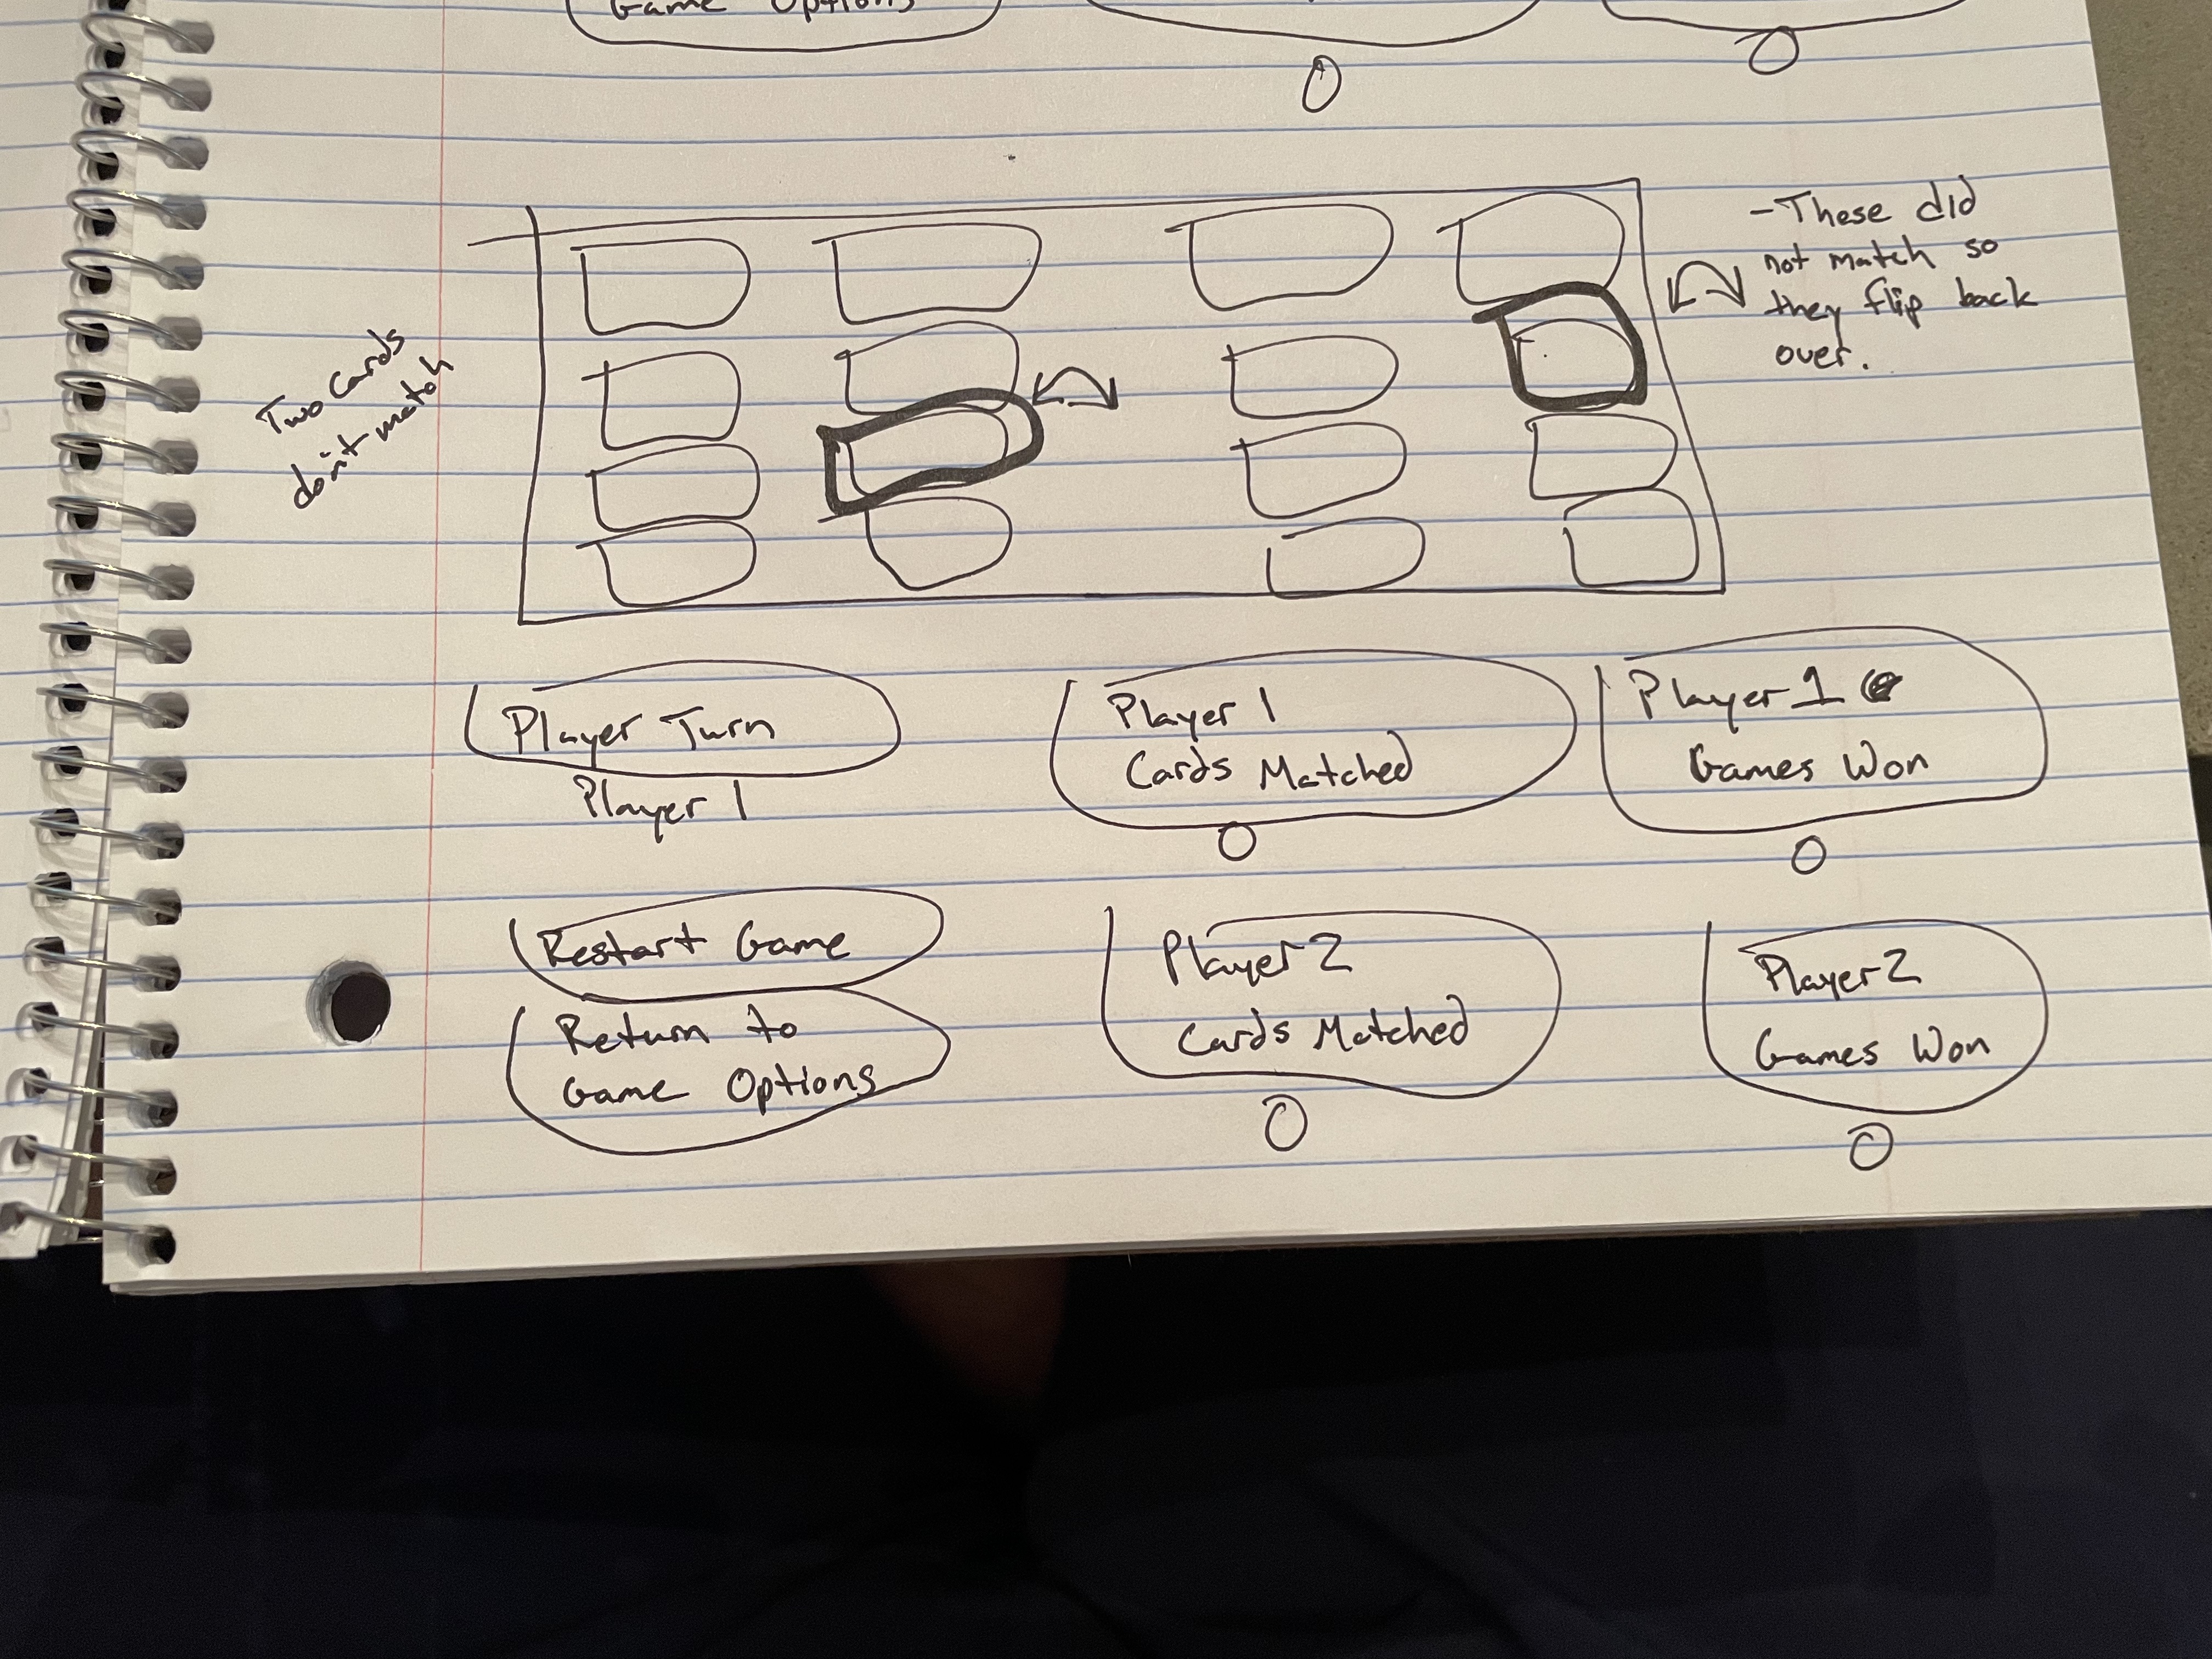 Game Options
0
0
- These did
not match so
they flip back
over.
Two Cards
don't match
Player Turn
Player 1
Player 1
Cards Matched
0
Player 1
Games Won
0
Restart Game
Return to
Game Options
Player 2
Cards Matched
0
Player 2
Games Won
0